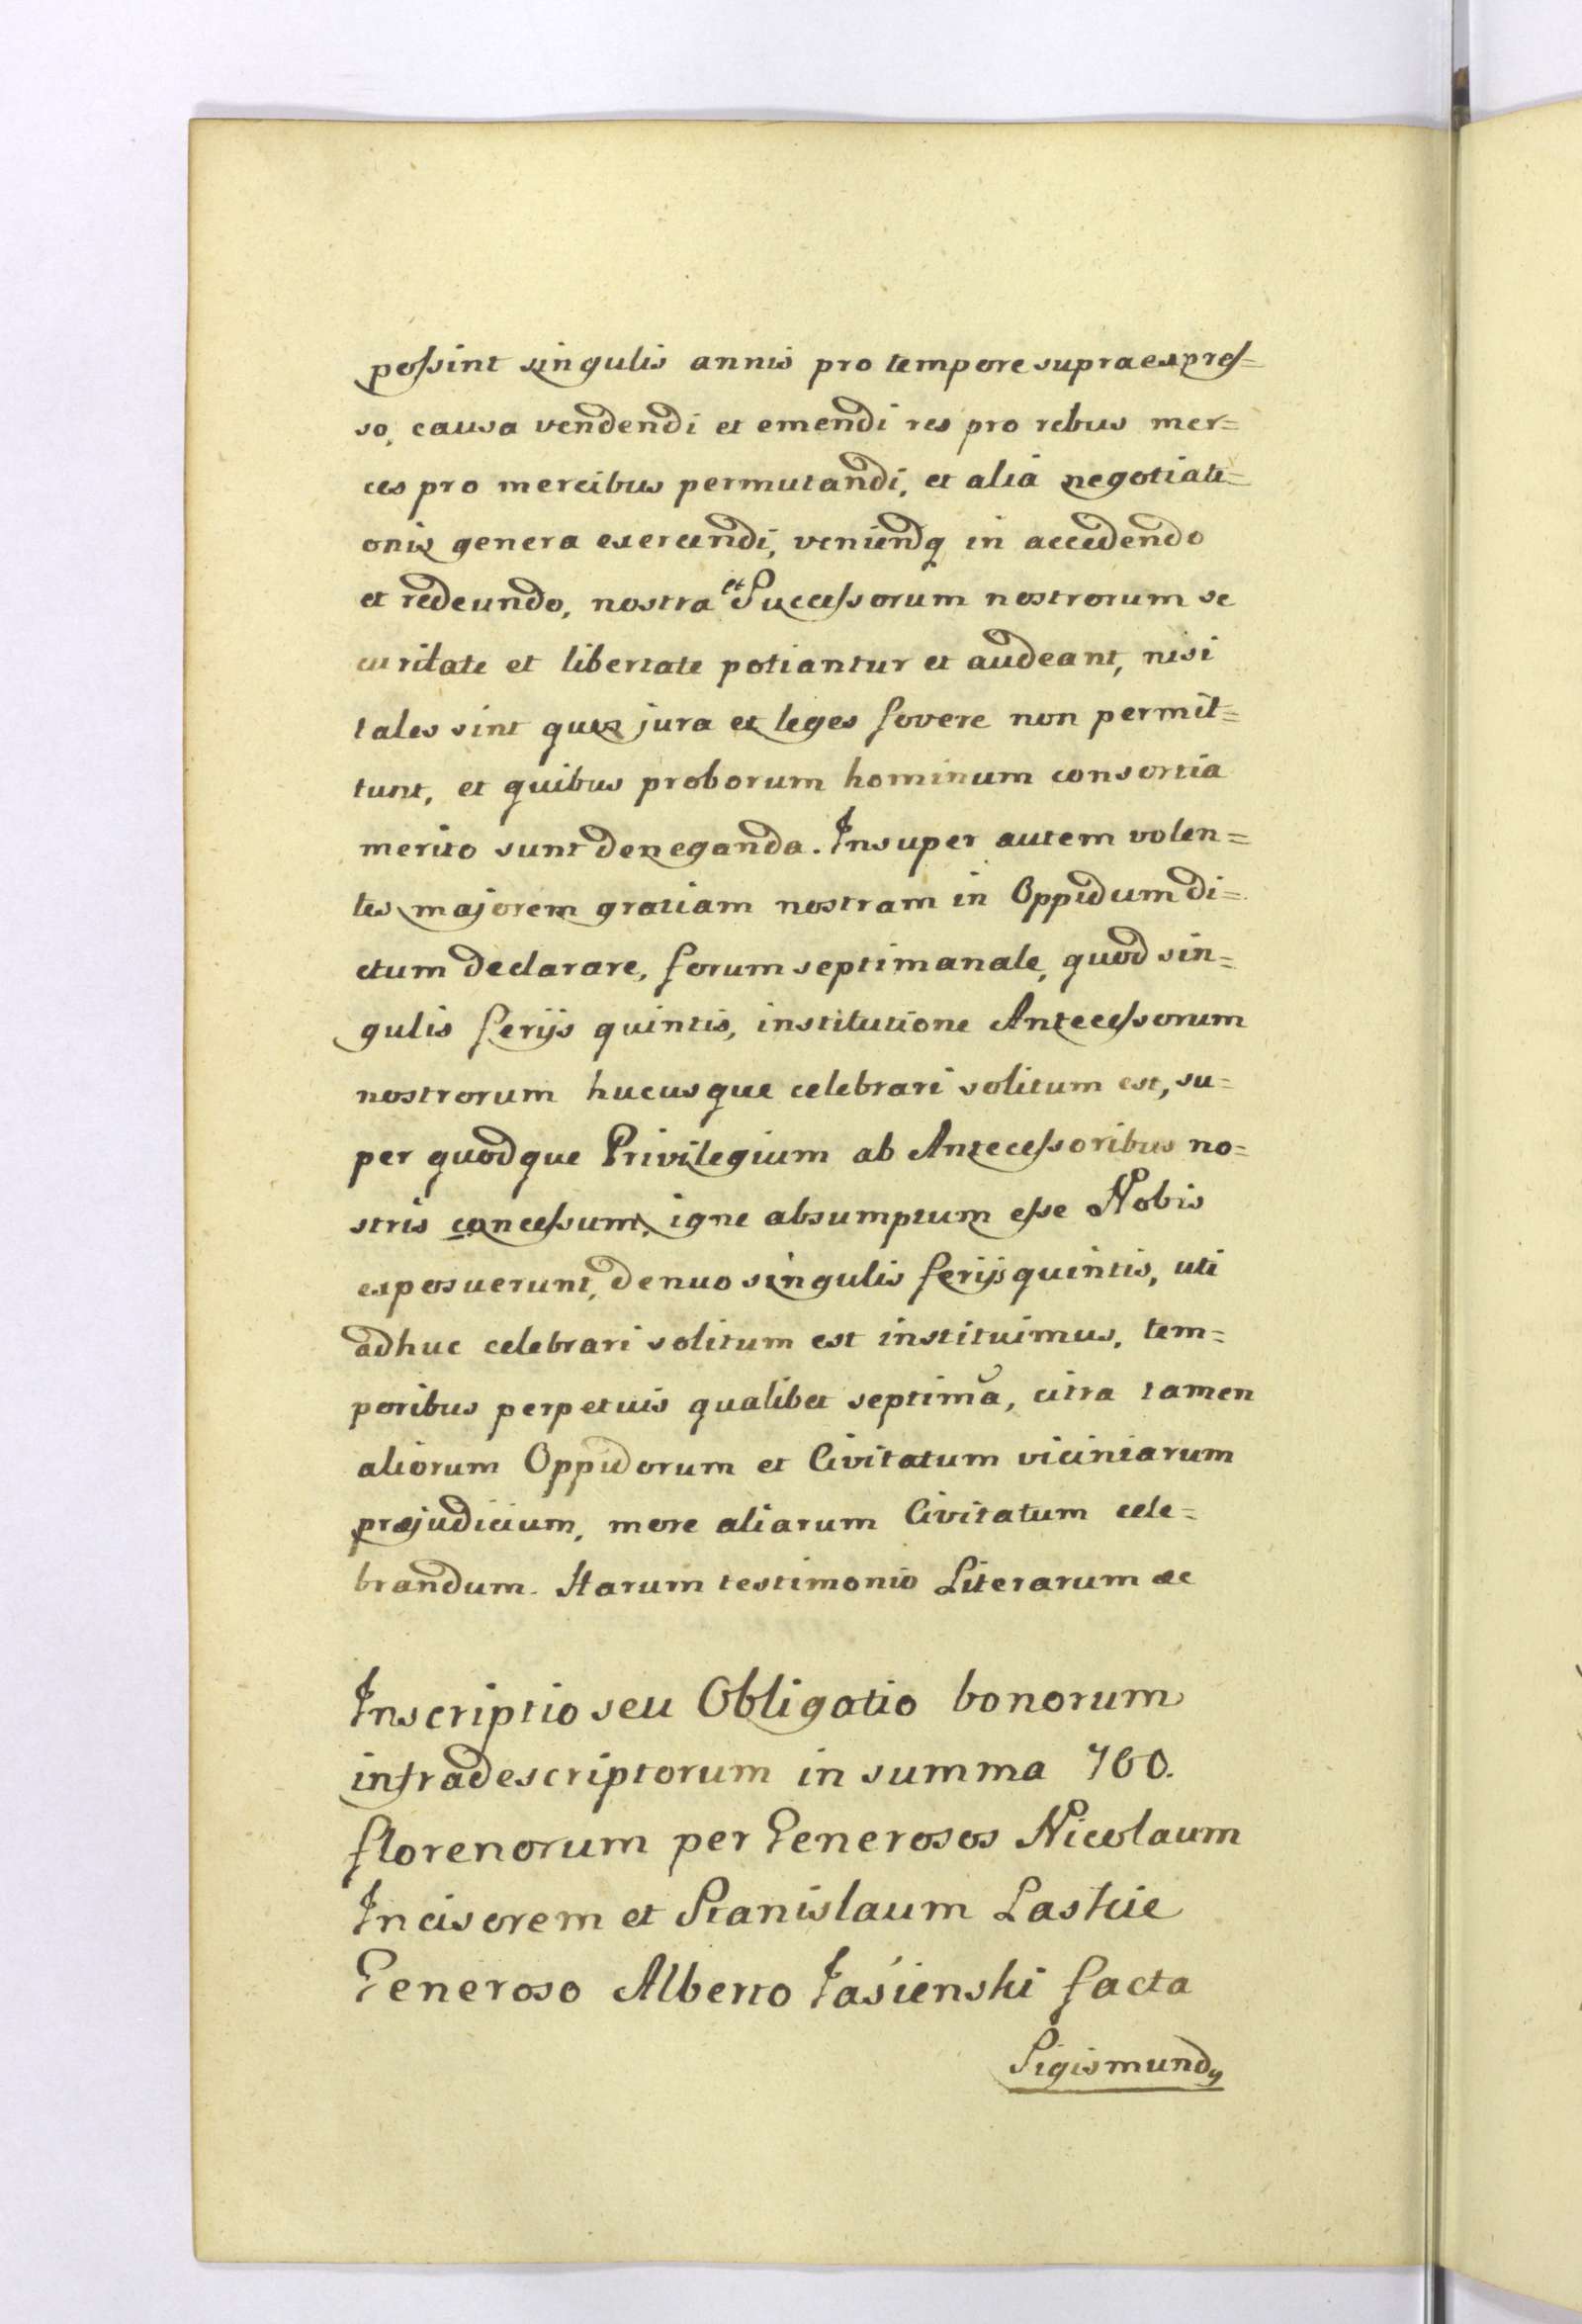 possint singulis annis pro tempore supraexpres=
so, causa vendendi et emendi res pro rebus mer=
ces pro mercibus permutandi, et alia negotiati=
onis genera exercendi, veniendq in accedendo
et redeundo, nostra et Successorum nostrorum se
curitate et libertate potiantur et audeant, nisi
tales sint quos jura et leges fovere non permit=
tunt, et quibus proborum hominum consortia
merito sunt deneganda. Insuper autem volen=
tes majorem gratiam nostram in Oppidum di=
ctum declarare, forum septimanale, quod sin=
gulis ferijs quintis, institutione Antecessorum
nostrorum hucusque celebrari solitum est, su=
per quodque Privilegium ab Antecessoribus no=
stris concessum, igne absumptum esse Nobis
exposuerunt, denuo singulis ferijs quintis, uti
adhuc celebrari solitum est instituimus, tem=
poribus perpetuis qualibet septima, citra tamen
aliorum Oppidorum et Civitatum viciniarum
præjudicium, more aliarum Civitatum cele=
brandum. Harum testimonio Literarum &c
Inscriptio seu Obligatio bonorum
infradescriptorum in summa 700.
florenorum per Generosos Nicolaum
Incisorem et Stanislaum Laskie
Generoso Alberto Jasienski facta
Sigismundq